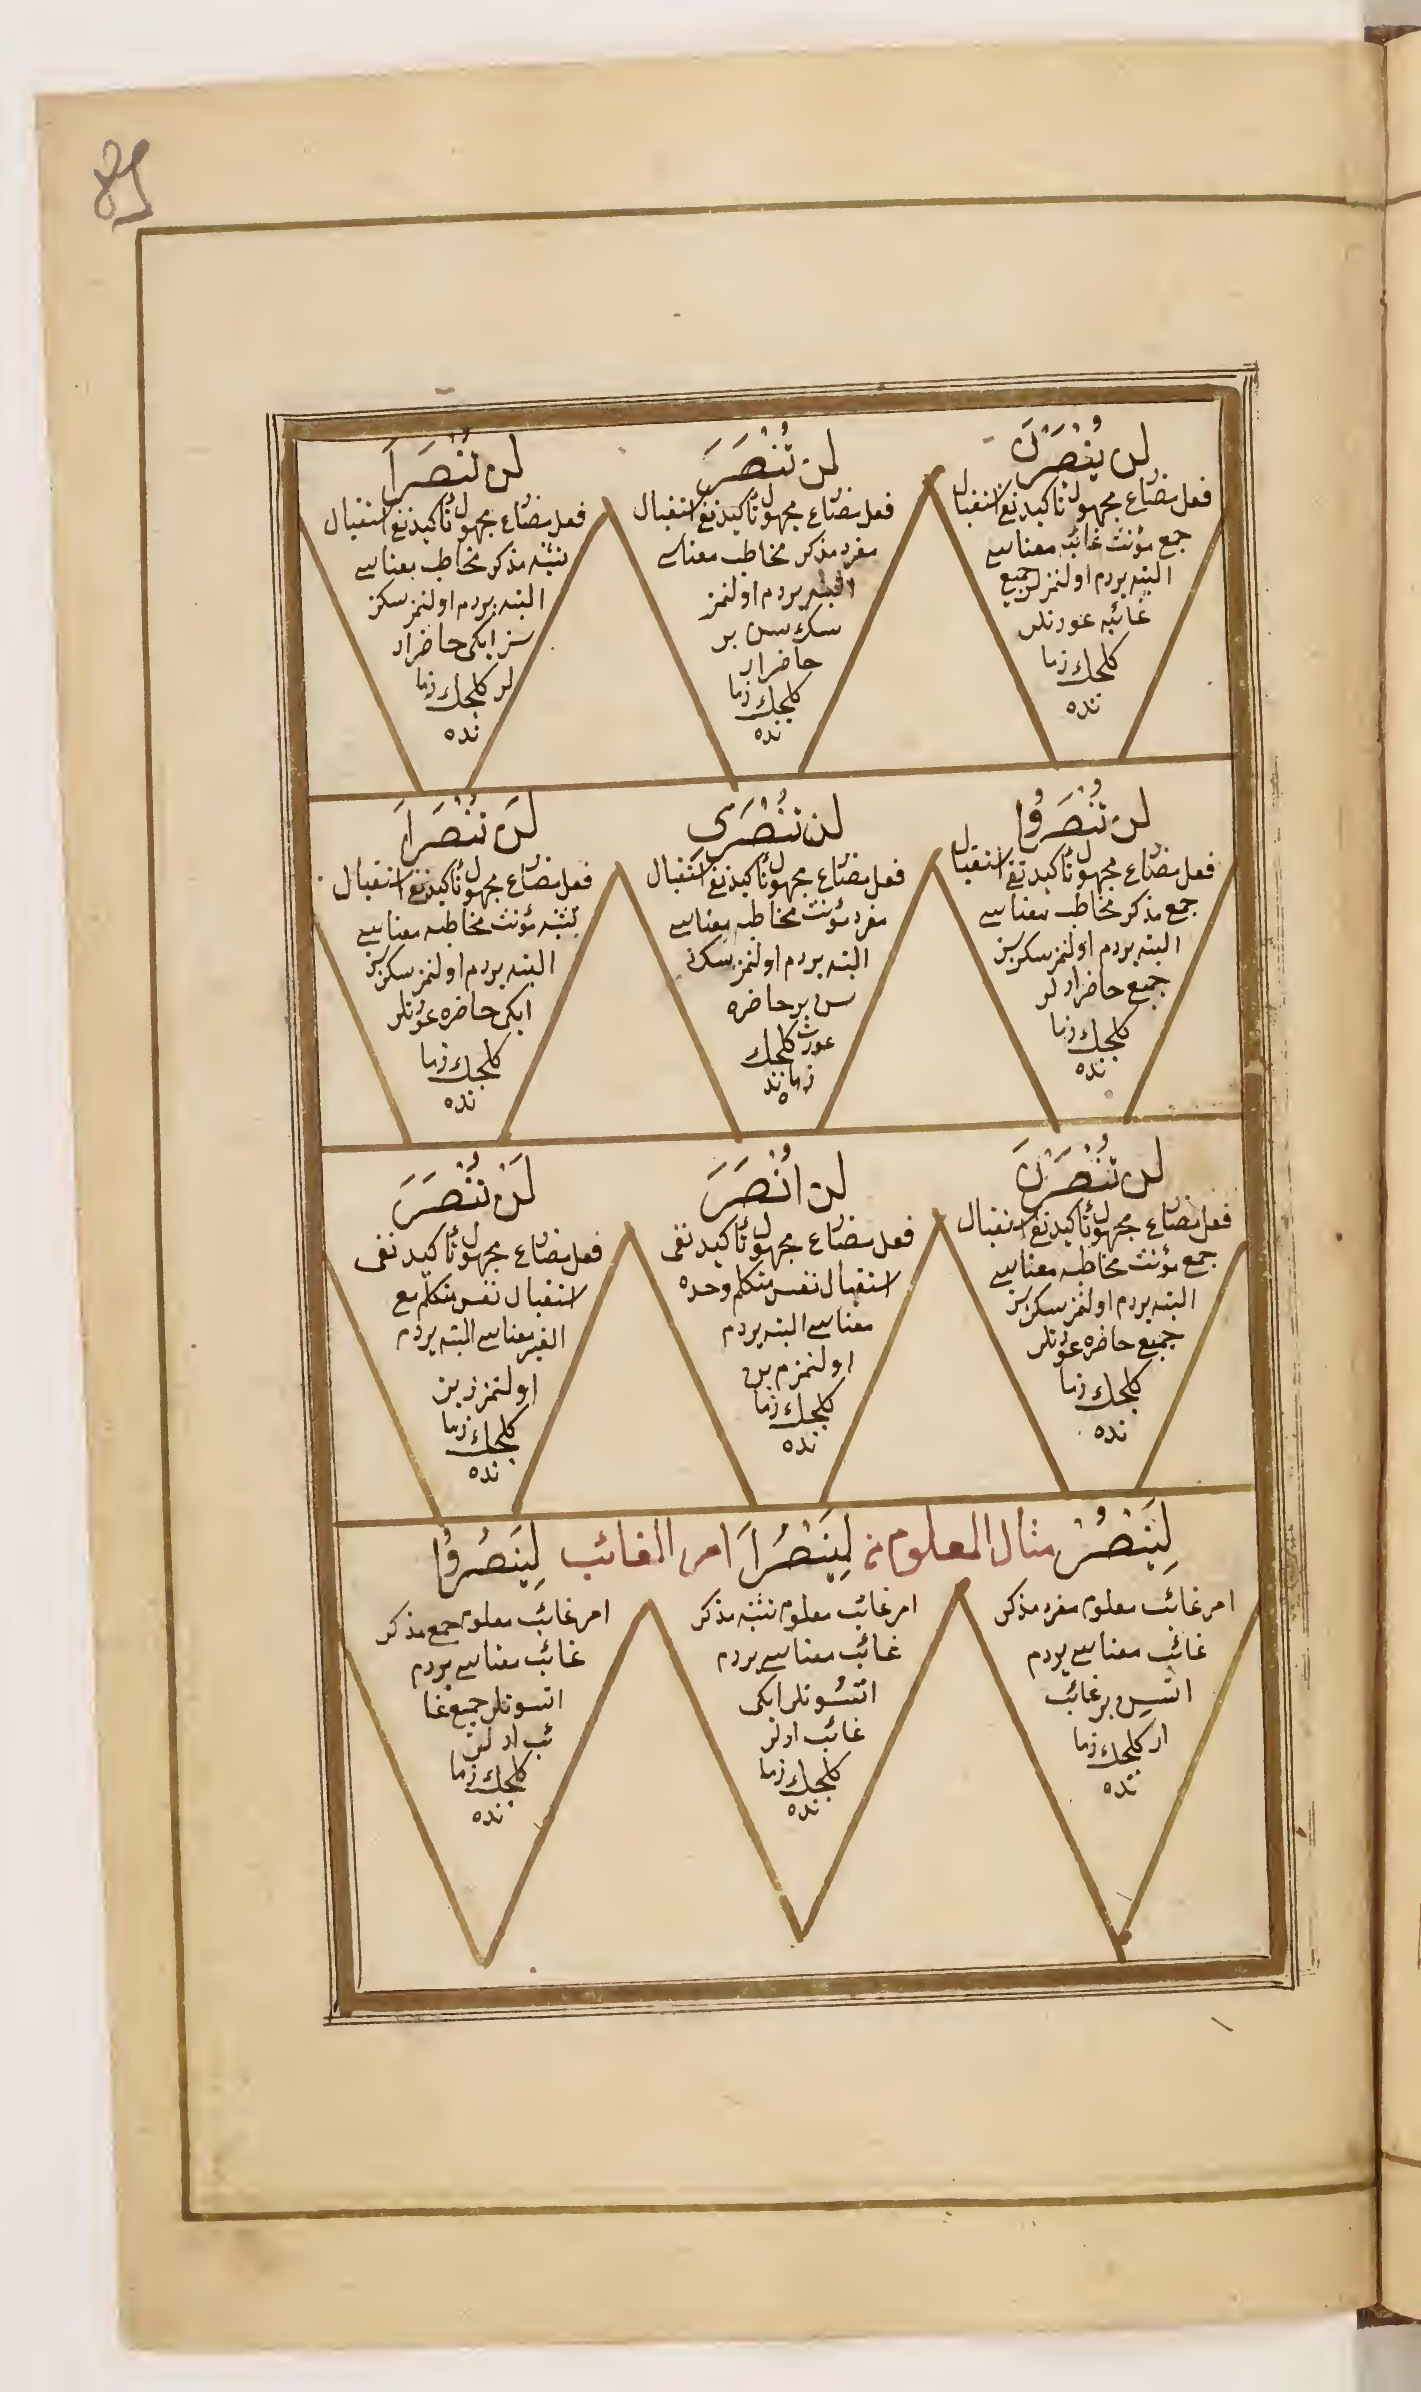 لن يُنْصَرْنَ
فعل مضارع مجهول تأكيد نفى استقبال
جمع مؤنث غائبه معناسى
البته يردم اولنمزلر جميع
غائبه عورتلر
كلجك زما
نده
لن تُنْصَرَ
فعل مضارع مجهول تأكيد نفى استقبال
مفرد مذكر مخاطب معناسى
البته يردم اولنمز
سك سن بر
حاضر ار
كلجك زما
نده
لن تُنْصَرَا
فعل مضارع مجهول تأكيد نفى استقبال
تثنيه مذكر مخاطب معناسى
البته يردم اولنمز سكز
سز ايكى حاضر ار
لر كلجك زما
نده
لن تُنْصَرُوا
فعل مضارع مجهول تأكيد نفى استقبال
جمع مذكر مخاطب معناسى
البته يردم اولنمز سكز سز
جميع حاضر ار لر
كلجك زما
نده
لن تُنْصَرِى
فعل مضارع مجهول تأكيد نفى استقبال
مفرد مؤنث مخاطبه معناسى
البته يردم اولنمز
سن بر حاضره
عورت كلجك
زما ند
ه
لَنْ تُنْصَرَا
فعل مضارع مجهول تأكيد نفى استقبال
تثنيه مؤنث مخاطبه معناسى
البته يردم اولنمز سكز سز
ايكى حاضره عورتلر
كلجك زما
نده
لن تُنْصَرْنَ
فعل مضارع مجهول تأكيد نفى استقبال
جمع مؤنث مخاطبه معناسى
البته يردم اولنمز سكز سز
جميع حاضره عورتلر
كلجك زما
نده
لن اُنْصَرَ
فعل مضارع مجهول تأكيد نفى
استقبال نفس متكلم وحده
معناسى البته يردم
اولنمزم بن
كلجك زما
نده
لَنْ نُنْصَرَ
فعل مضارع مجهول تأكيد نفى
استقبال نفس متكلم مع
الغير معناسى البته يردم
اولنمز ز بز
كلجك زما
نده
لِيَنْصُرْ مثال المعلوم من لِيَنْصُرَا امر الغائب لِيَنْصُرُوا
امر غائب معلوم مفرد مذكر
غائب معناسى يردم
اتسن بر غائب
ار كلجك زما
نده
امر غائب معلوم تثنيه مذكر
غائب معناسى يردم
اتسونلر ايكى
غائب ار لر
كلجك زما
نده
امر غائب معلوم جمع مذكر
غائب معناسى يردم
اتسونلر جميع غا
ئب ار لر
كلجك زما
نده